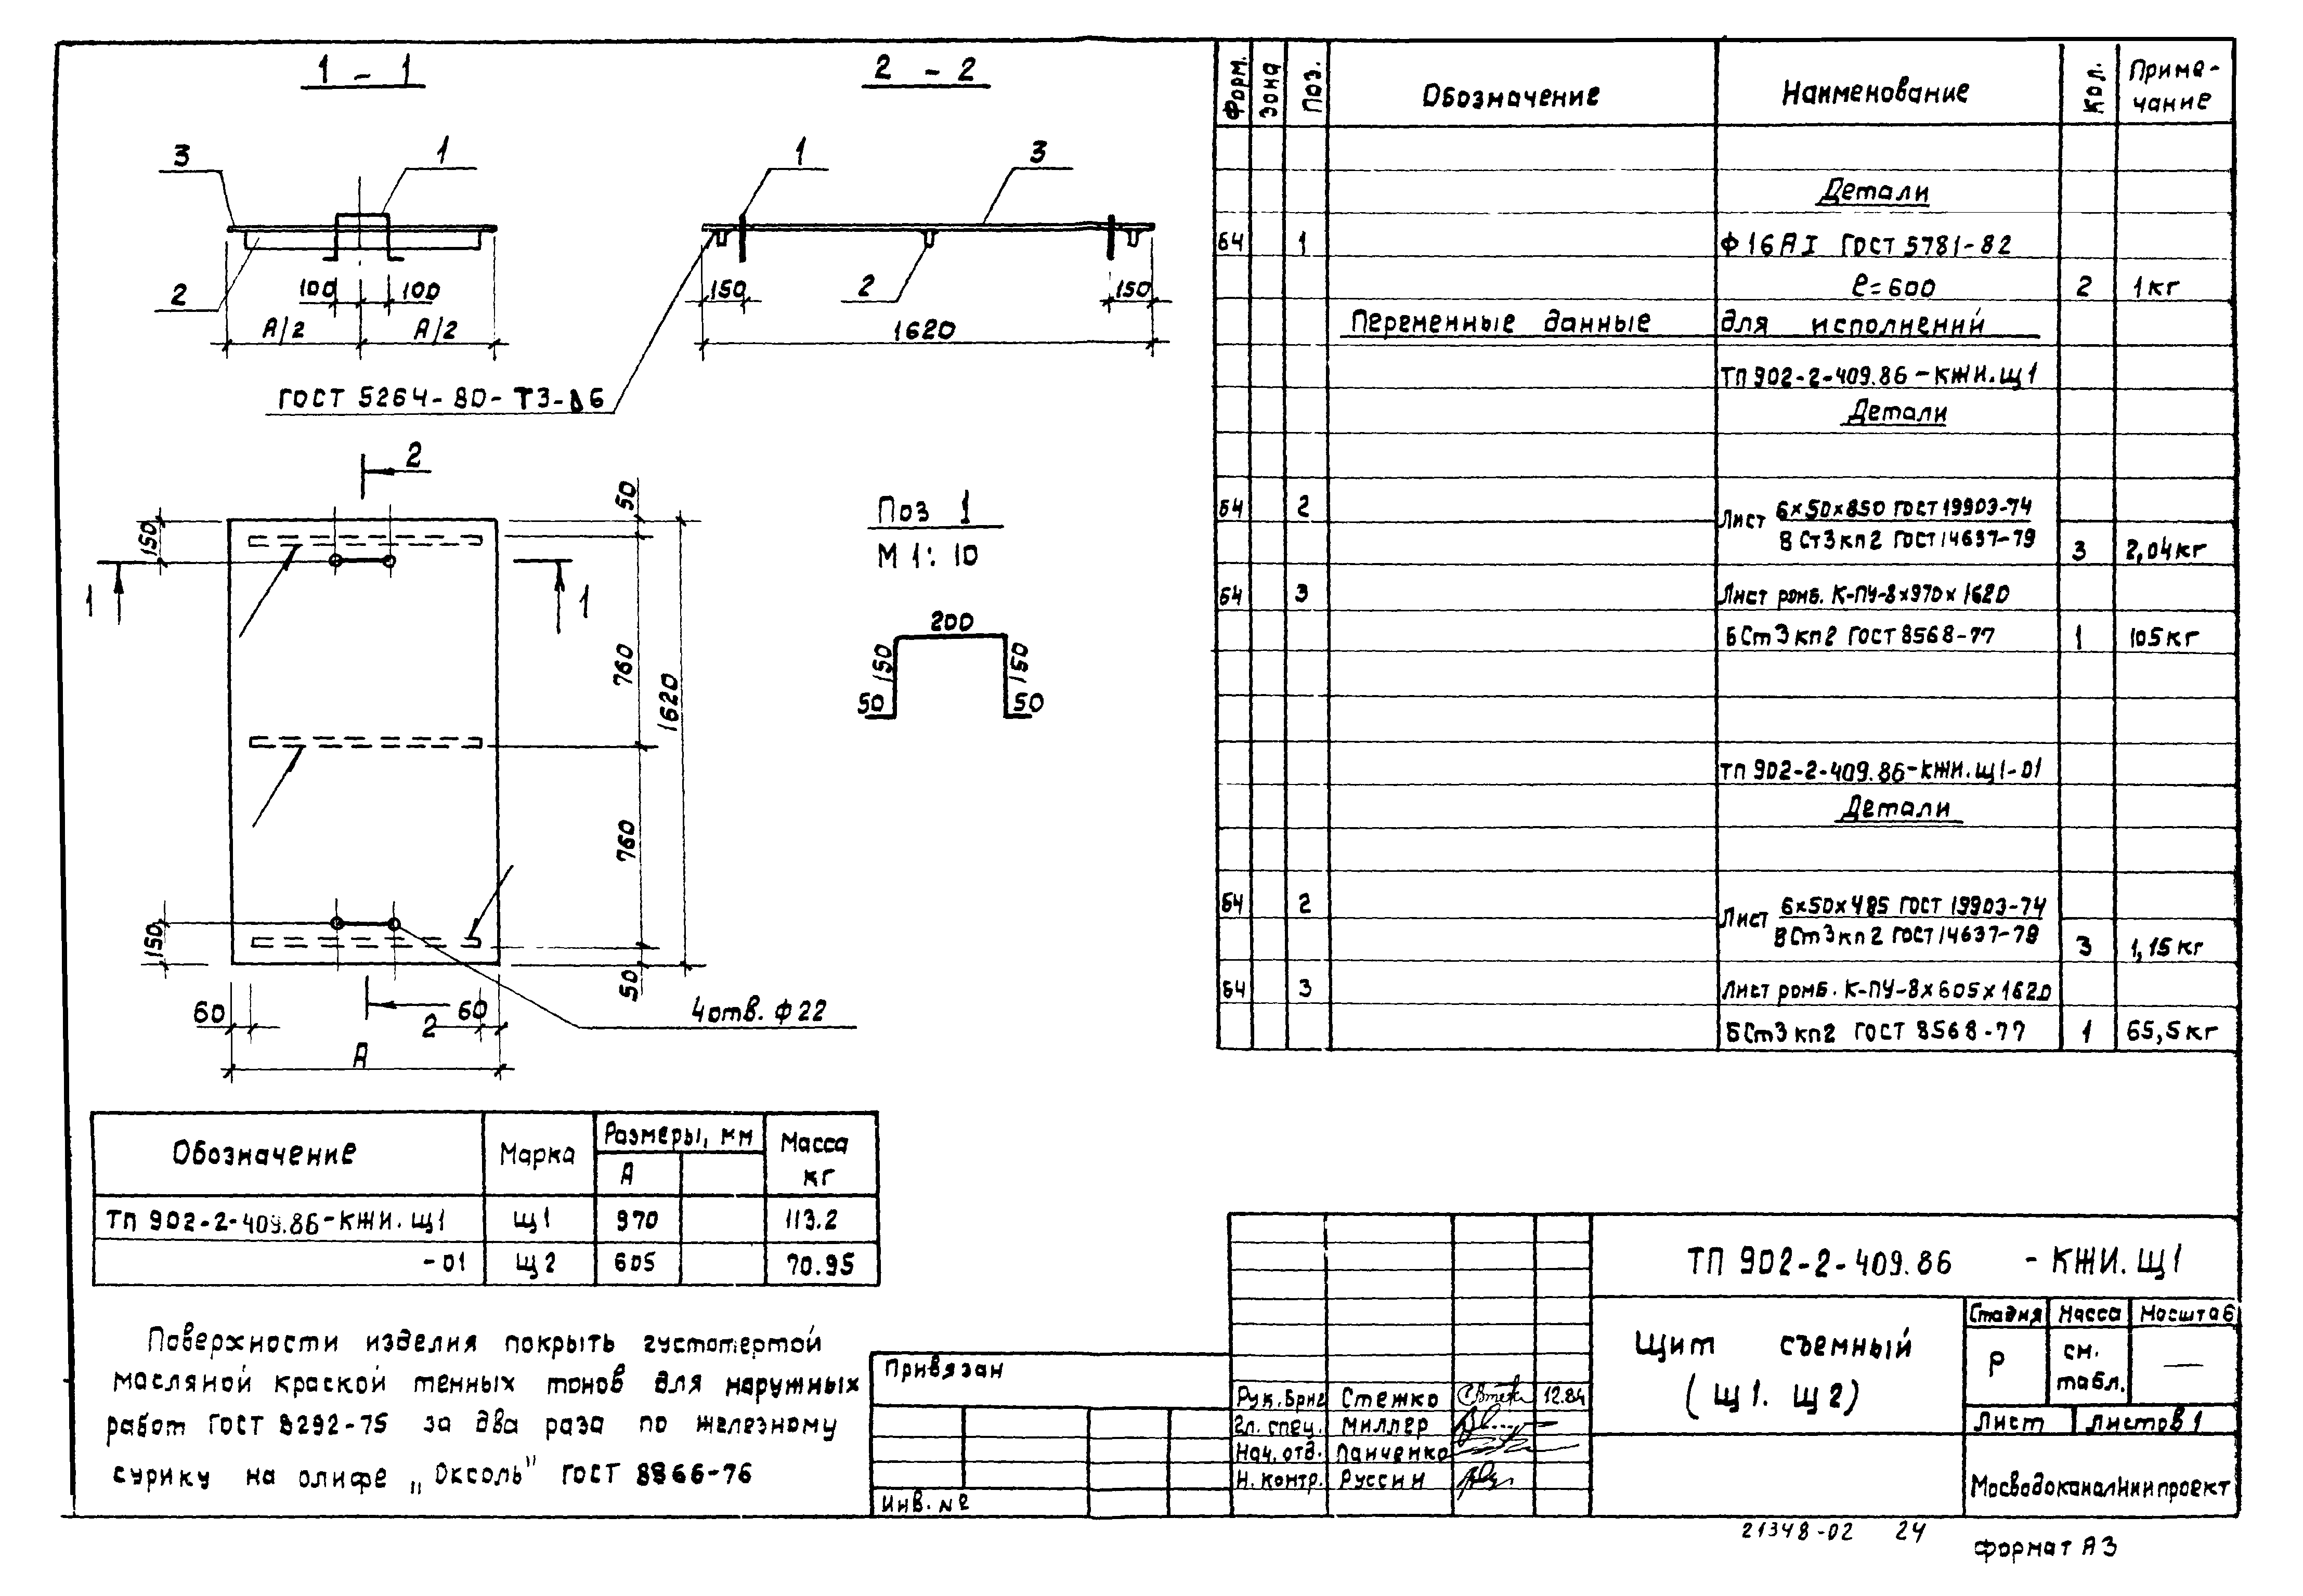 1 - 1
2 - 2
3
1
2
100
100
А/2
А/2
1
3
150
2
150
1620
ГОСТ 5264-80-Т3-Δ6
2
50
150
1
1
760
1620
760
150
50
60
2
60
А
4 отв. ф22
Поз 1
М 1:10
200
150
150
50
50
Форм.
Зона
Поз.
Обозначение
Наименование
Кол.
Приме-
чание
Детали
б4 1 Ф16АI ГОСТ 5781-82
ℓ=600 2 1кг
Переменные данные для исполнений
ТП 902-2-409.86-КЖИ.Щ1
Детали
б4 2 Лист 6×50×850 ГОСТ 19903-74
ВСт3кп2 ГОСТ 14637-79 3 2,04кг
б4 3 Лист ромб. К-ПУ-8×970×1620
БСт3кп2 ГОСТ 8568-77 1 105кг
ТП 902-2-409.86-КЖИ.Щ1-01
Детали
б4 2 Лист 6×50×485 ГОСТ 19903-74
ВСт3кп2 ГОСТ 14637-79 3 1,15кг
б4 3 Лист ромб. К-ПУ-8×605×1620
БСт3кп2 ГОСТ 8568-77 1 65,5кг
Обозначение Марка Размеры, мм Масса
А кг
ТП 902-2-409.86-КЖИ.Щ1 Щ1 970 113.2
-01 Щ2 605 70.95
Поверхности изделия покрыть густотертой
масляной краской темных тонов для наружных
работ ГОСТ 8292-75 за два раза по железному
сурику на олифе „Оксоль" ГОСТ 8866-76
Привязан
Инв. №
Рук. бриг Стежко 12.84
Гл. спец. Миллер
Нач. отд. Панченко
Н. контр. Руссин
ТП 902-2-409.86 - КЖИ.Щ1
Щит съемный
(Щ1. Щ2)
Стадия Масса Масштаб
Р см. —
табл.
Лист Листов 1
МосводоканалНИИпроект
21348-02 24
Формат А3